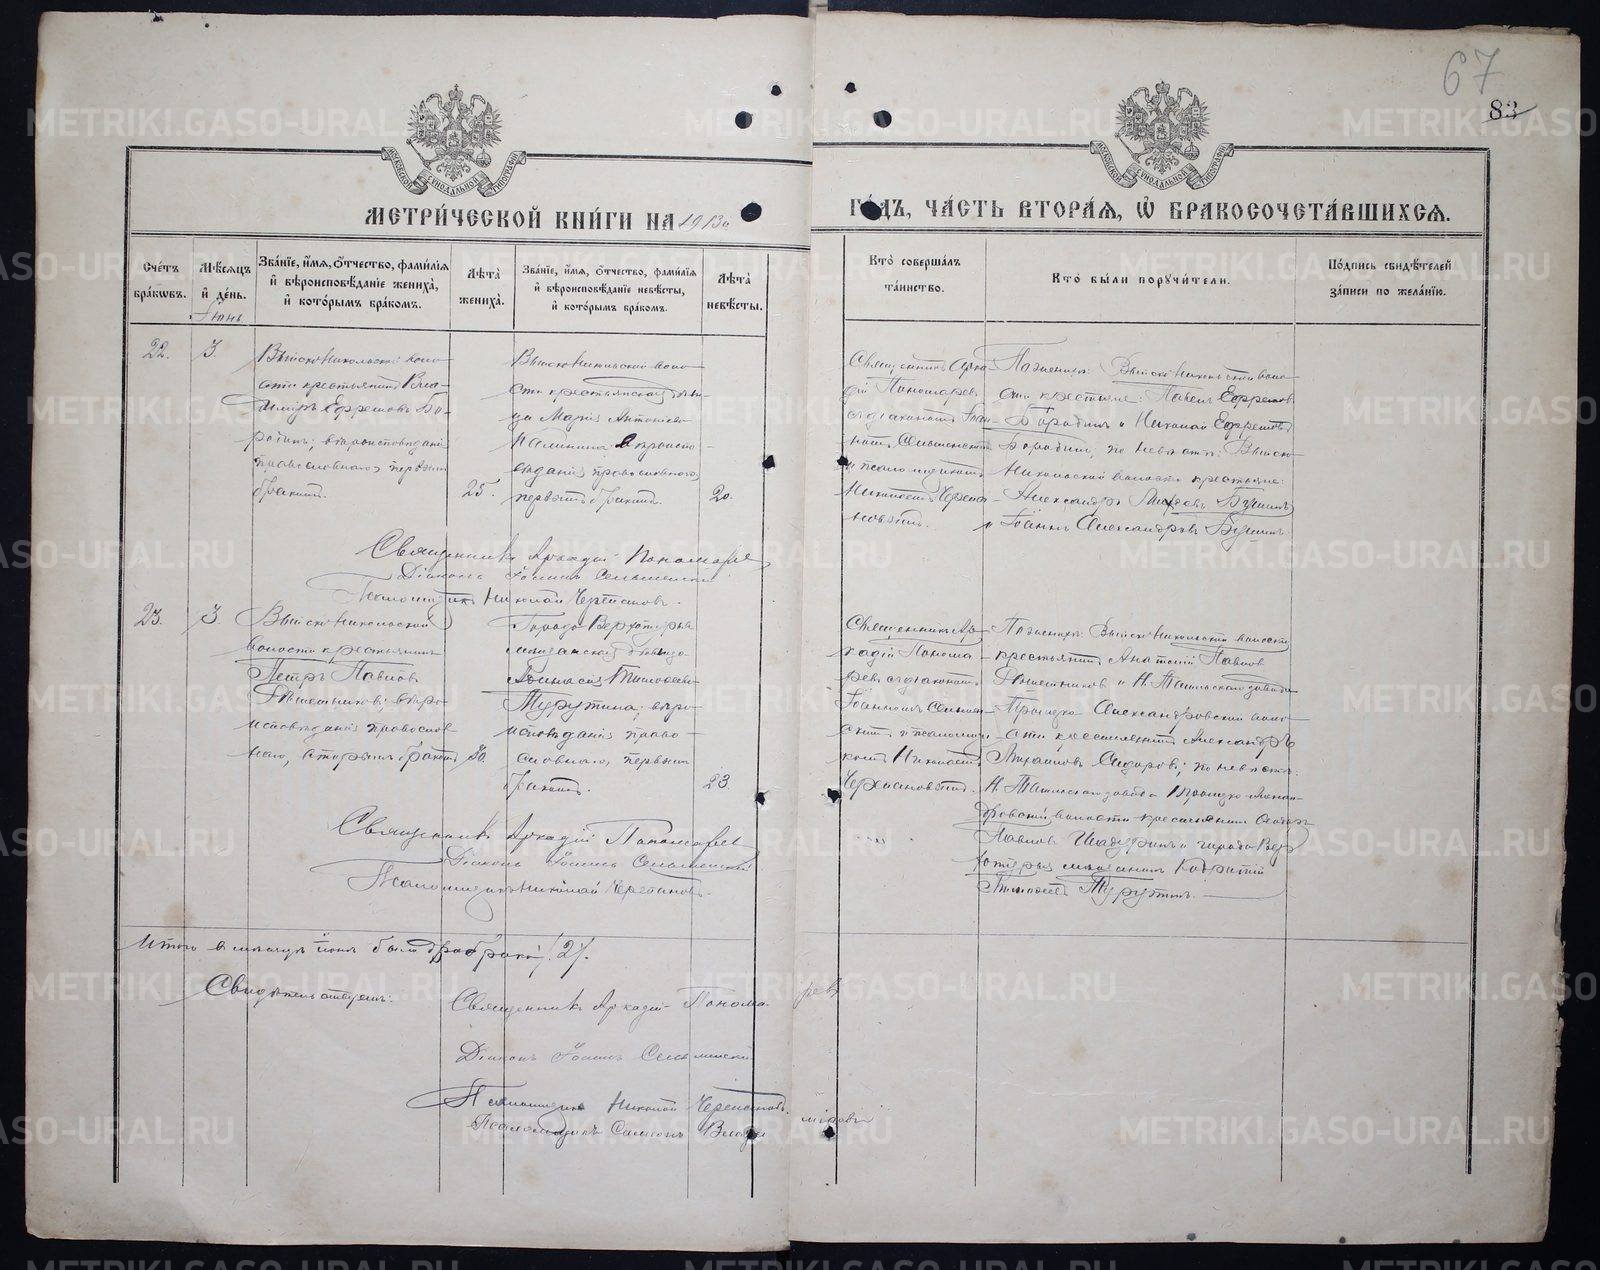 67
83
МОСКОВСКОЙ СѴНОДАЛЬНОЙ ТИПОГРАФІИ
МОСКОВСКОЙ СѴНОДАЛЬНОЙ ТИПОГРАФІИ
МЕТРИ́ЧЕСКОЙ КНИ́ГИ НА 1913й
ГО́ДЪ, ЧА́СТЬ ВТОРА́Ѧ, Ѡ҆ БРАКОСОЧЕТА́ВШИХСѦ.
Сче́тъ бра́кѡвъ.
Мѣ́сѧцъ и҆ де́нь.
Зва́нїе, и҆́мѧ, ѻ҆́тчество, фами́лїѧ и҆ вѣроисповѣ́данїе жениха̀, и҆ кото́рымъ бра́комъ.
Лѣ́та жениха̀.
Зва́нїе, и҆́мѧ, ѻ҆́тчество, фами́лїѧ и҆ вѣроисповѣ́данїе невѣ́сты, и҆ кото́рымъ бра́комъ.
Лѣ́та невѣ́сты.
Кто̀ соверша́лъ та́инство.
Кто̀ бы́ли поручи́тели.
По́дпись свидѣ́телей за́писи по жела́нїю.
Іюнь
22.
3.
Выйско-Никольской воло-
сти крестьянинъ Вла-
димиръ Ефремовъ Бо-
родинъ; вѣроисповѣданія
православнаго, первымъ
бракомъ.
25.
Выйско-Никольской воло-
сти крестьянская дѣви-
ца Марія Антоніева
Калинина, вѣроиспо-
вѣданія православнаго,
первымъ бракомъ.
20.
Священникъ Арка-
дій Пономаревъ
съ діакономъ Іоан-
номъ Сельменскимъ
и псаломщикомъ
Николаемъ Черепа-
новымъ.
По женихѣ: Выйско-Никольской воло-
сти крестьяне: Павелъ Ефремовъ
Бородинъ и Николай Ефремовъ
Бородинъ; по невѣстѣ: Выйско-
Никольской волости крестьяне:
Александръ
и Іоаннъ Александровъ
Священникъ Аркадій Пономаревъ
Діаконъ Іоаннъ Сельменскій
Псаломщикъ Николай Черепановъ.
23.
3.
Выйско-Никольской
волости крестьянинъ
Петръ Павловъ
вѣро-
исповѣданія православ-
наго, вторымъ бракомъ
30.
Города Верхотурья
мѣщанская дѣвица
Аѳанасія Тимоѳеева
Турутина; вѣро-
исповѣданія право-
славнаго, первымъ
бракомъ.
23.
Священникъ Ар-
кадій Понома-
ревъ съ діакономъ
Іоанномъ Сельмен-
скимъ и псаломщи-
комъ Николаемъ
Черепановымъ.
По женихѣ: Выйско-Никольской волости
крестьянинъ Анатолій Павловъ
и Н. Тагильскаго завода
Троицко Александровской воло-
сти крестьянинъ Александръ
Михаиловъ Сидоровъ; по невѣстѣ:
Н. Тагильскаго завода Троицко Алексан-
дровской волости крестьянинъ
Павловъ и города Вер-
хотурья мѣщанинъ
Тимоѳеевъ Турутинъ.
Священникъ Аркадій Пономаревъ
Діаконъ Іоаннъ Сельменскій
Псаломщикъ Николай Черепановъ.
Итого въ мѣсяцѣ іюнѣ было два брака /2/.
Свидѣтельствуемъ:
Священникъ Аркадій Пономаревъ
Діаконъ Іоаннъ Сельменскій
Псаломщикъ Николай Черепановъ.
METRIKI.GASO-URAL.RU